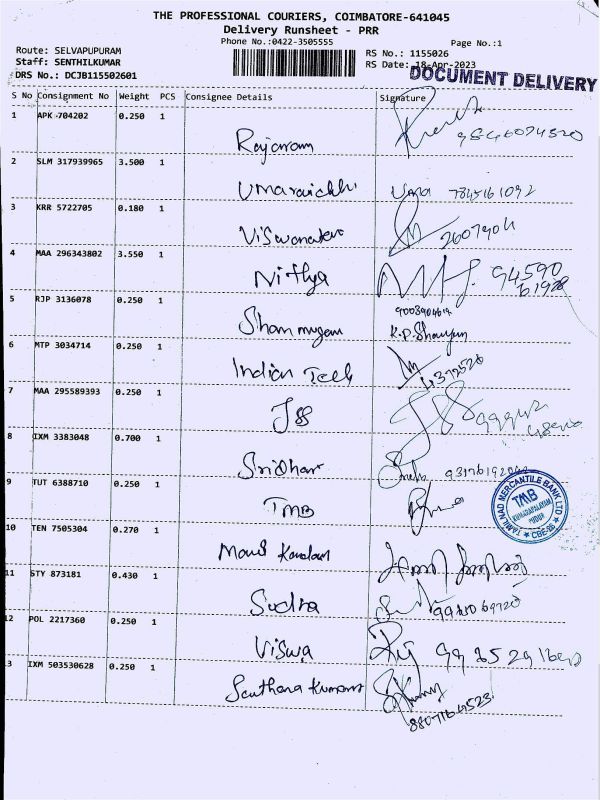 THE PROFESSIONAL COURIERS, COIMBATORE-641045
Delivery Runsheet - PRR
Phone No.:0422-3505555
Page No.:1
Route: SELVAPUPURAM
Staff: SENTHILKUMAR
DRS No.: DCJB115502601
RS No.: 1155026
RS Date: 18-Apr-2023
DOCUMENT DELIVERY
S No Consignment No Weight PCS Consignee Details Signature
1 APK 704202 0.250 1
Rajaram
2 SLM 317939965 3.500 1
Uma 7845161092
3 KRR 5722705 0.180 1
2607904
4 MAA 296343802 3.550 1
Nithya 94590
61928
5 RJP 3136078 0.250 1
9003904614
Shanmugam
6 MTP 3034714 0.250 1
Indian Tech
4372520
7 MAA 295589393 0.250 1
JSS
8 IXM 3383048 0.700 1
Sridhar
9 TUT 6388710 0.250 1
TMB
TAMILNAD MERCANTILE BANK LTD
TMB
CBE-26
10 TEN 7505304 0.270 1
11 STY 873181 0.430 1
Sudha
12 POL 2217360 0.250 1
Viswa
13 IXM 503530628 0.250 1
Santhana Kumar
8807164523